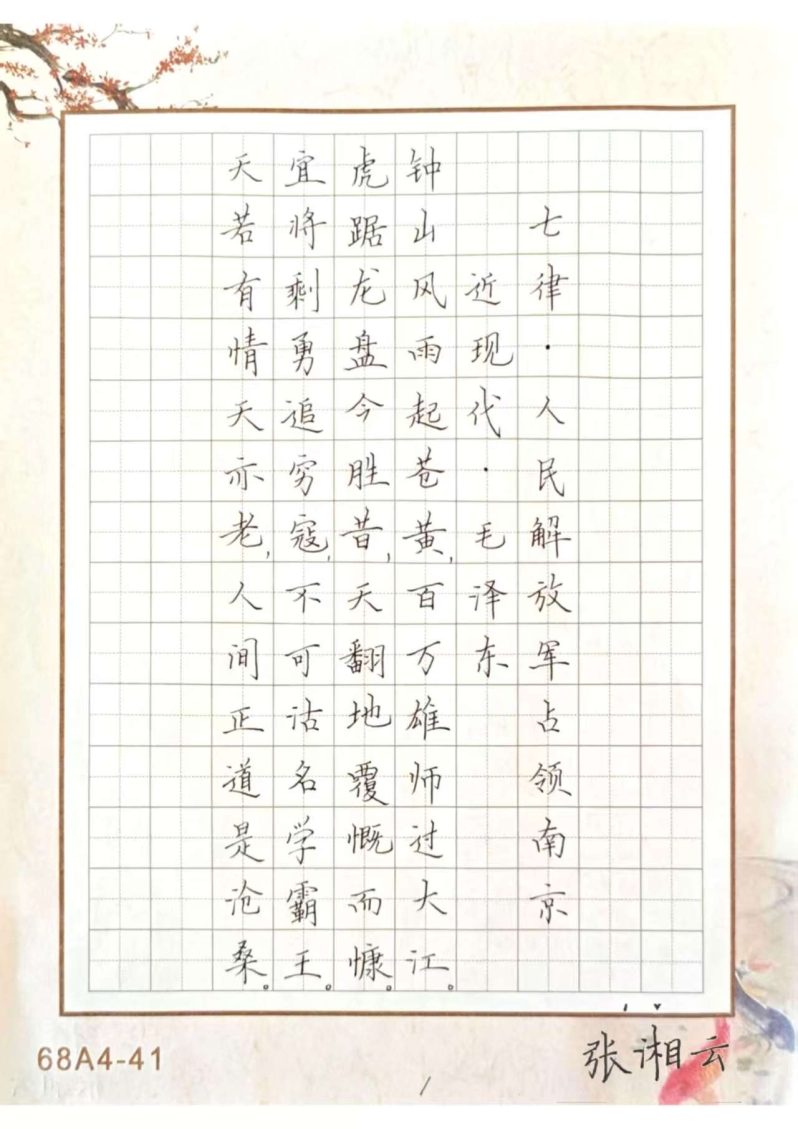 七律·人民解放军占领南京
近现代·毛泽东
钟山风雨起苍黄,百万雄师过大江。
虎踞龙盘今胜昔,天翻地覆慨而慷。
宜将剩勇追穷寇,不可沽名学霸王。
天若有情天亦老,人间正道是沧桑。
68A4-41
张湘云